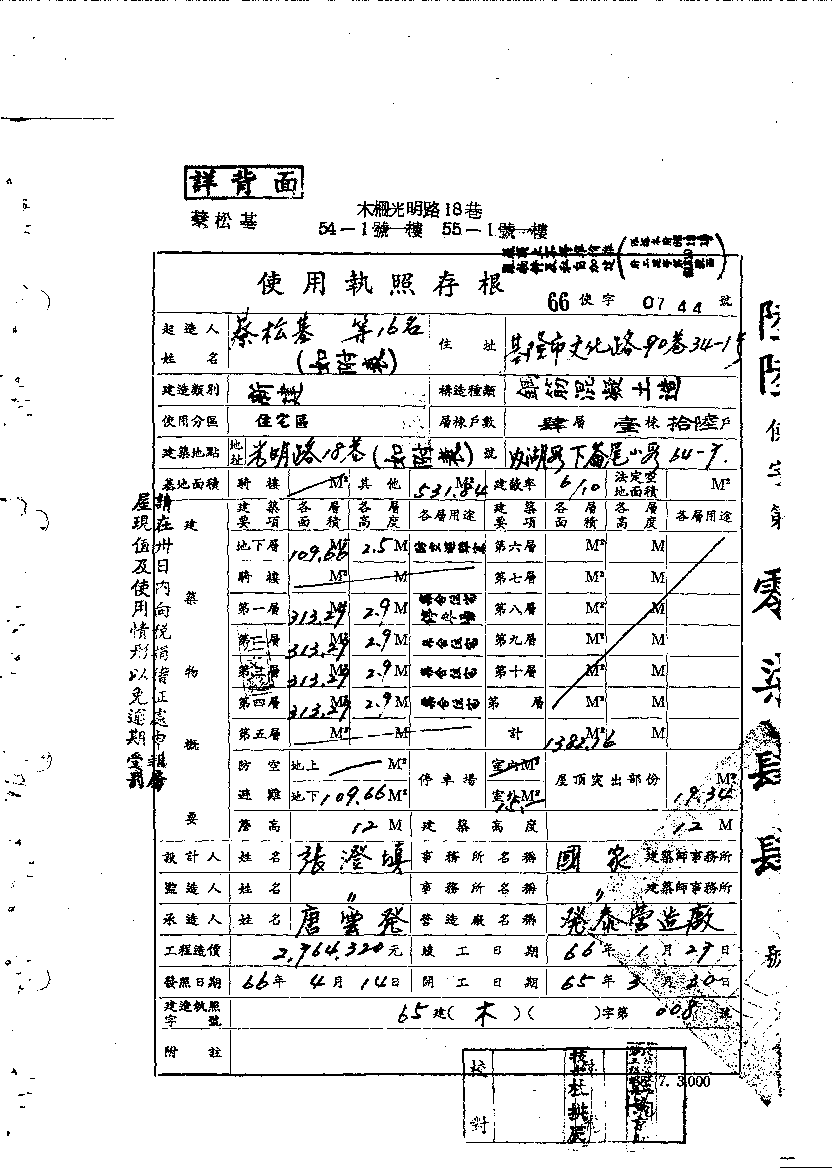 詳背面
蔡松基
木柵光明路18巷
54-1號一樓 55-1號一樓
使用執照存根
66 使字 0744 號
起造人姓名 蔡松基 等16名 住址 基隆市文化路90巷34-1號
建造類別 新建 構造種類 鋼筋混凝土造
使用分區 住宅區 層棟戶數 肆層 壹棟 拾陸戶
建築地點 地址 光明路18巷 號 內湖
基地面積 騎樓 M² 其他 531.84 M² 建蔽率 6/10 法定空地面積 M²
建築物概要
建築要項 各層面積 各層高度 各層用途 建築要項 各層面積 各層高度 各層用途
地下層 109.66 M² 2.5 M 第六層 M² M
騎樓 M² M 第七層 M² M
第一層 313.29 M² 2.9 M 第八層 M² M
第二層 313.29 M² 2.9 M 第九層 M² M
第三層 313.29 M² 2.9 M 第十層 M² M
第四層 313.29 M² 2.9 M 第 層 M² M
第五層 M² M 計 1382.16 M² M
防空避難 地上 M² 停車場 室內 M² 屋頂突出部份 19.34 M²
地下 109.66 M² 室外 M²
簷高 12 M 建築高度 12 M
設計人 姓名 張澄填 事務所名稱 國家 建築師事務所
監造人 姓名 〃 事務所名稱 〃 建築師事務所
承造人 姓名 唐雲發 營造廠名稱 發泰營造廠
工程造價 2,964,320元 竣工日期 66年1月29日
發照日期 66年4月14日 開工日期 65年3月30日
建造執照字號 65建(木)( )字第008號
附註
校對
7. 3,000
請在卅日內向稅捐稽征處申報房
屋現值及使用情形以免逾期受罰
陸陸使字第零柒肆肆號